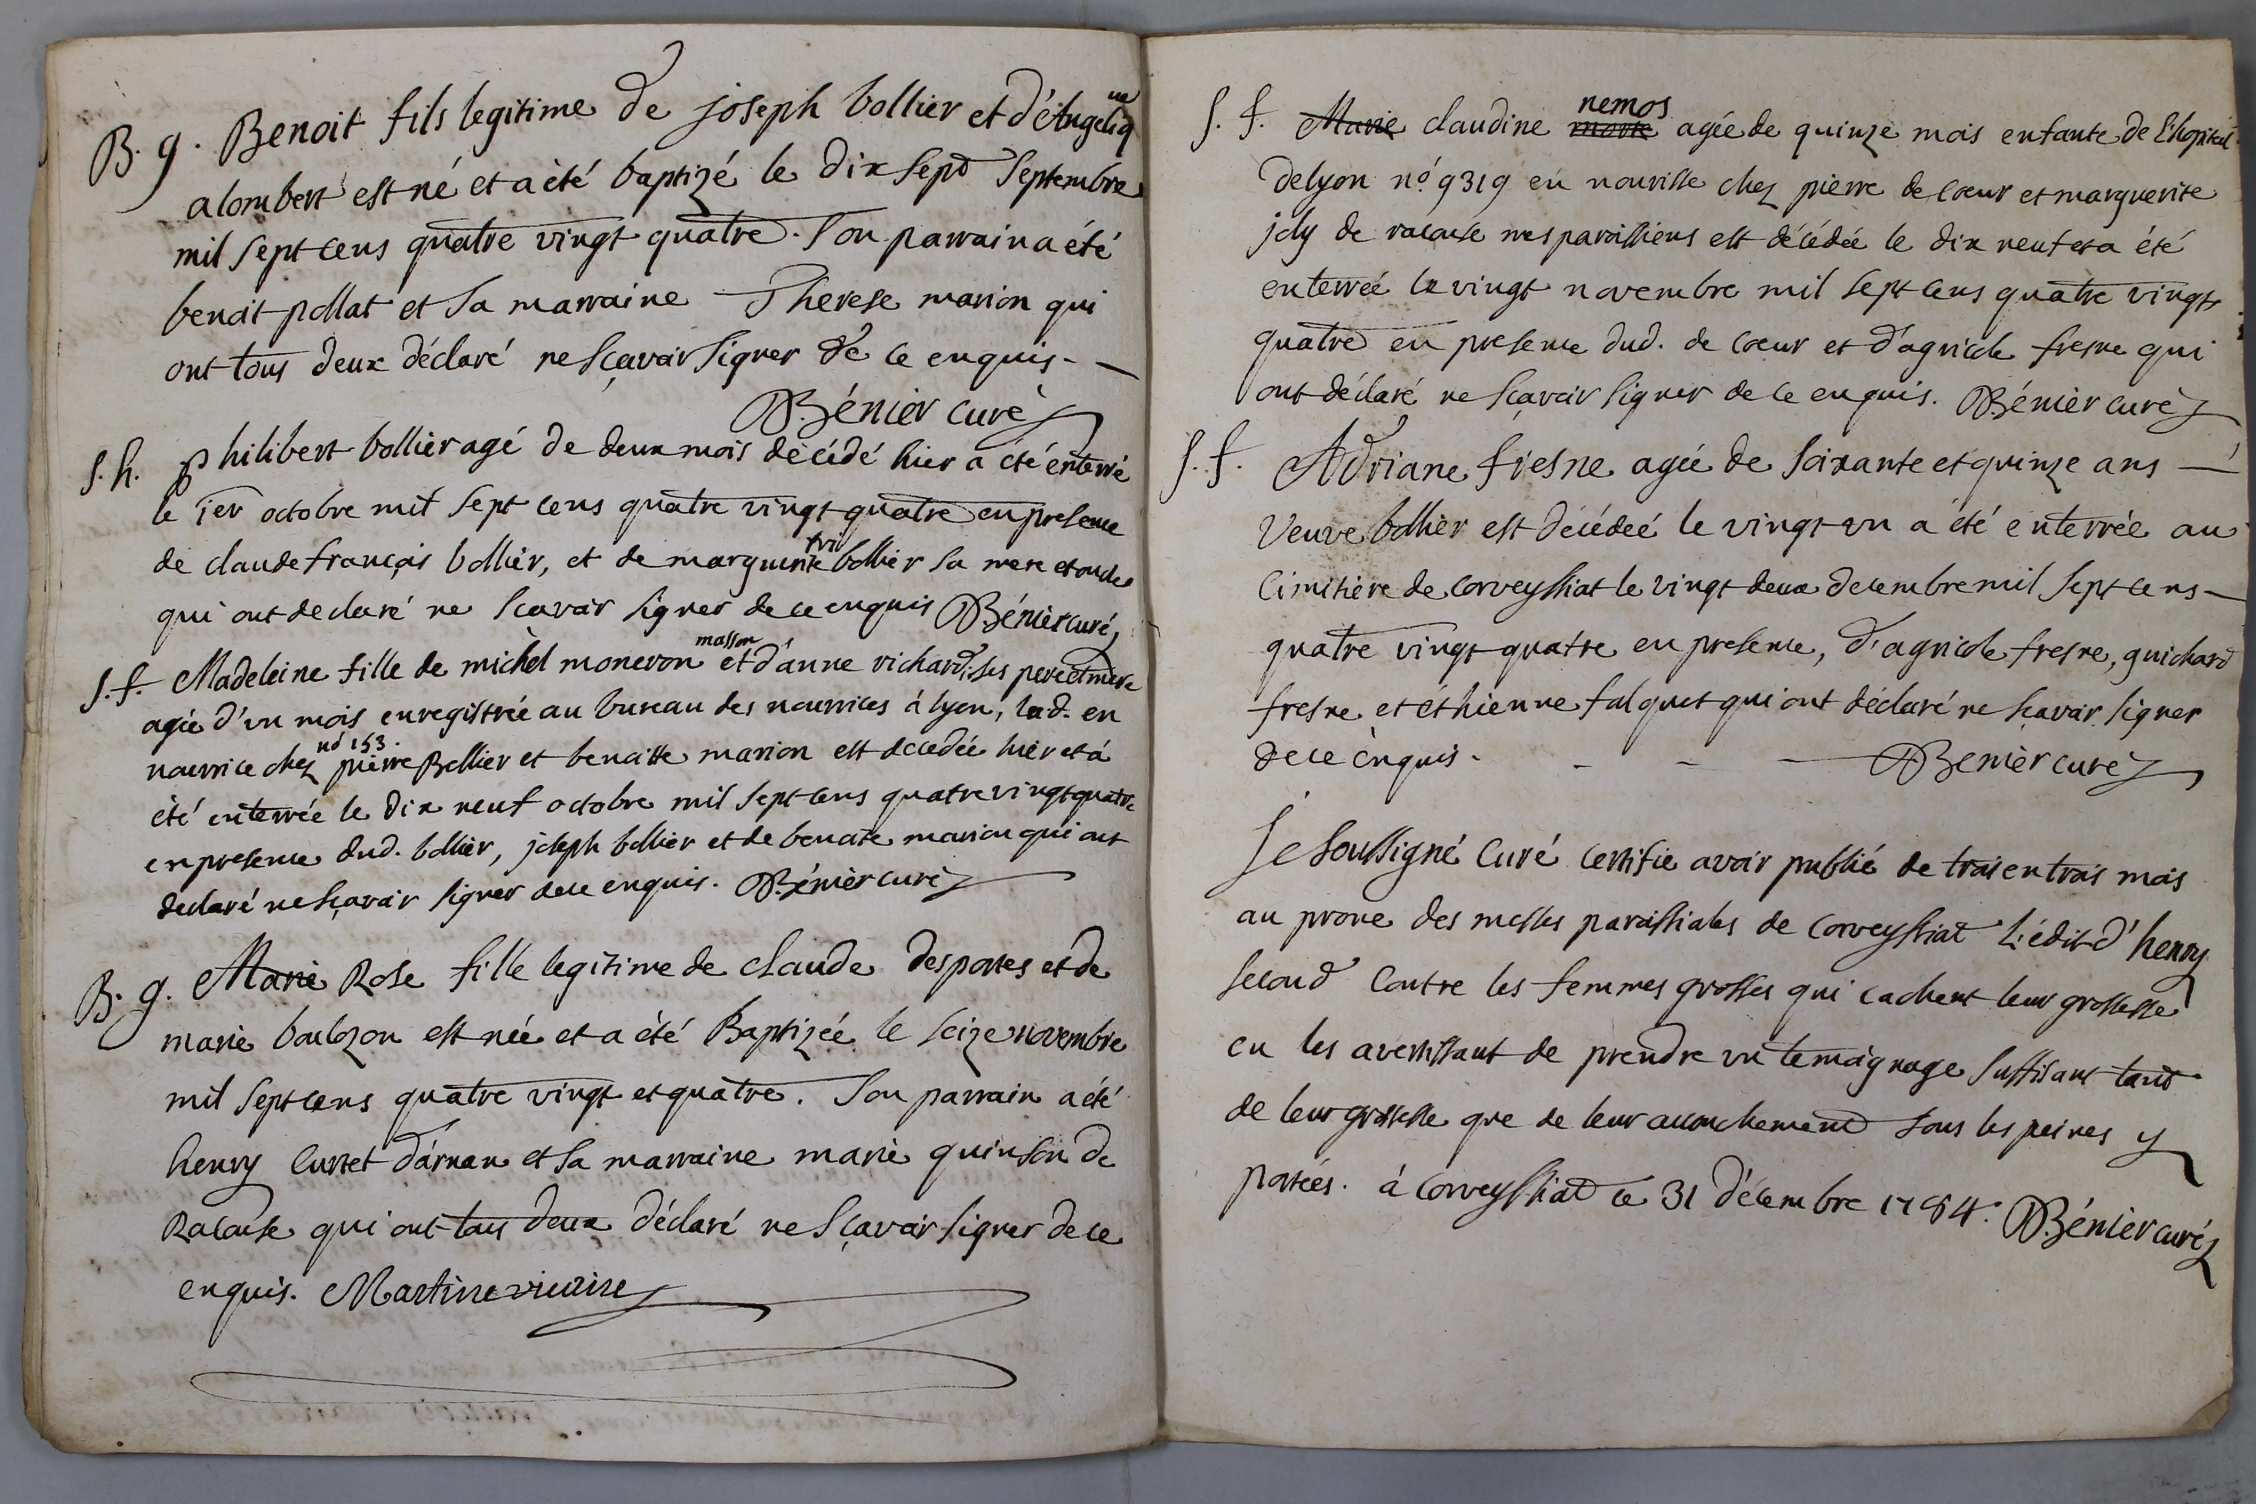 B. g. Benoit fils legitime de joseph bollier et d'Angeliq ue
alombert est né et a été baptizé le dix sept Septembre
mil sept cens quatre vingt quatre. Son parrain a été
benoit pollat et sa marraine Therese marion qui
ont tous deux déclaré ne sçavoir signer de ce enquis.
Bénier curé
S. h. Philibert bollier agé de deux mois décédé hier a été enterré
le 1er octobre mil sept cens quatre vingt quatre en presence
de claude françois bollier, et de marguerite bollier sa mere et oncle
qui ont declaré ne scavoir signer de ce enquis Bénier curé
S. f. Madeleine fille de michel moneron masson et d'anne richard, ses pere et mere
agée d'un mois enregistrée au bureau des nourrices à lyon, lad. en
no 153.
nourrice chez pierre Bollier et benoitte marion est decedée hier et a
été enterrée le dix neuf octobre mil sept cens quatre vingt quatre
en presence dud. bollier, joseph bollier et de benoite marion qui ont
declaré ne sçavoir signer de ce enquis. Bénier curé
B. g. Marie Rose fille legitime de claude desportes et de
marie boulozon est née et a été Baptizée le seize novembre
mil sept cens quatre vingt et quatre. Son parrain a été
henry Curtet d'arnan et sa marraine marie quinson de
Racouse qui ont tous deux déclaré ne sçavoir signer de ce
enquis. Martine vicaire
S. f. Marie claudine morte nemos agée de quinze mois enfante de l'hopital
de lyon no. 9319 en nourisse chez pierre de coeur et marguerite
joly de racouse mes paroissiens est décédée le dix neuf et a été
enterrée le vingt novembre mil sept cens quatre vingt
quatre en presence dud. de coeur et d'agricole fresne qui
ont déclaré ne sçavoir signer de ce enquis. Bénier curé
S. f. Adriane fresne agée de soixante et quinze ans
Veuve bollier est décédeé le vingt un a été enterrée au
Cimitière de corveyssiat le vingt deux decembre mil sept cens
quatre vingt quatre en presence, d'agricole fresne, guichard
fresne et éthienne falquet qui ont déclaré ne sçavoir signer
de ce enquis. Benier curé
Je soussigné Curé certifie avoir publié de trois en trois mois
au prone des messes paroissiales de Corveyssiat l'édit d'henry
second contre les femmes grosses qui cachent leur grossesse
en les avertissant de prendre un temoignage suffisant tant
de leur grossesse que de leur accouchement sous les peines y
portées. à Corveyssiat le 31 décembre 1784. Bénier curé